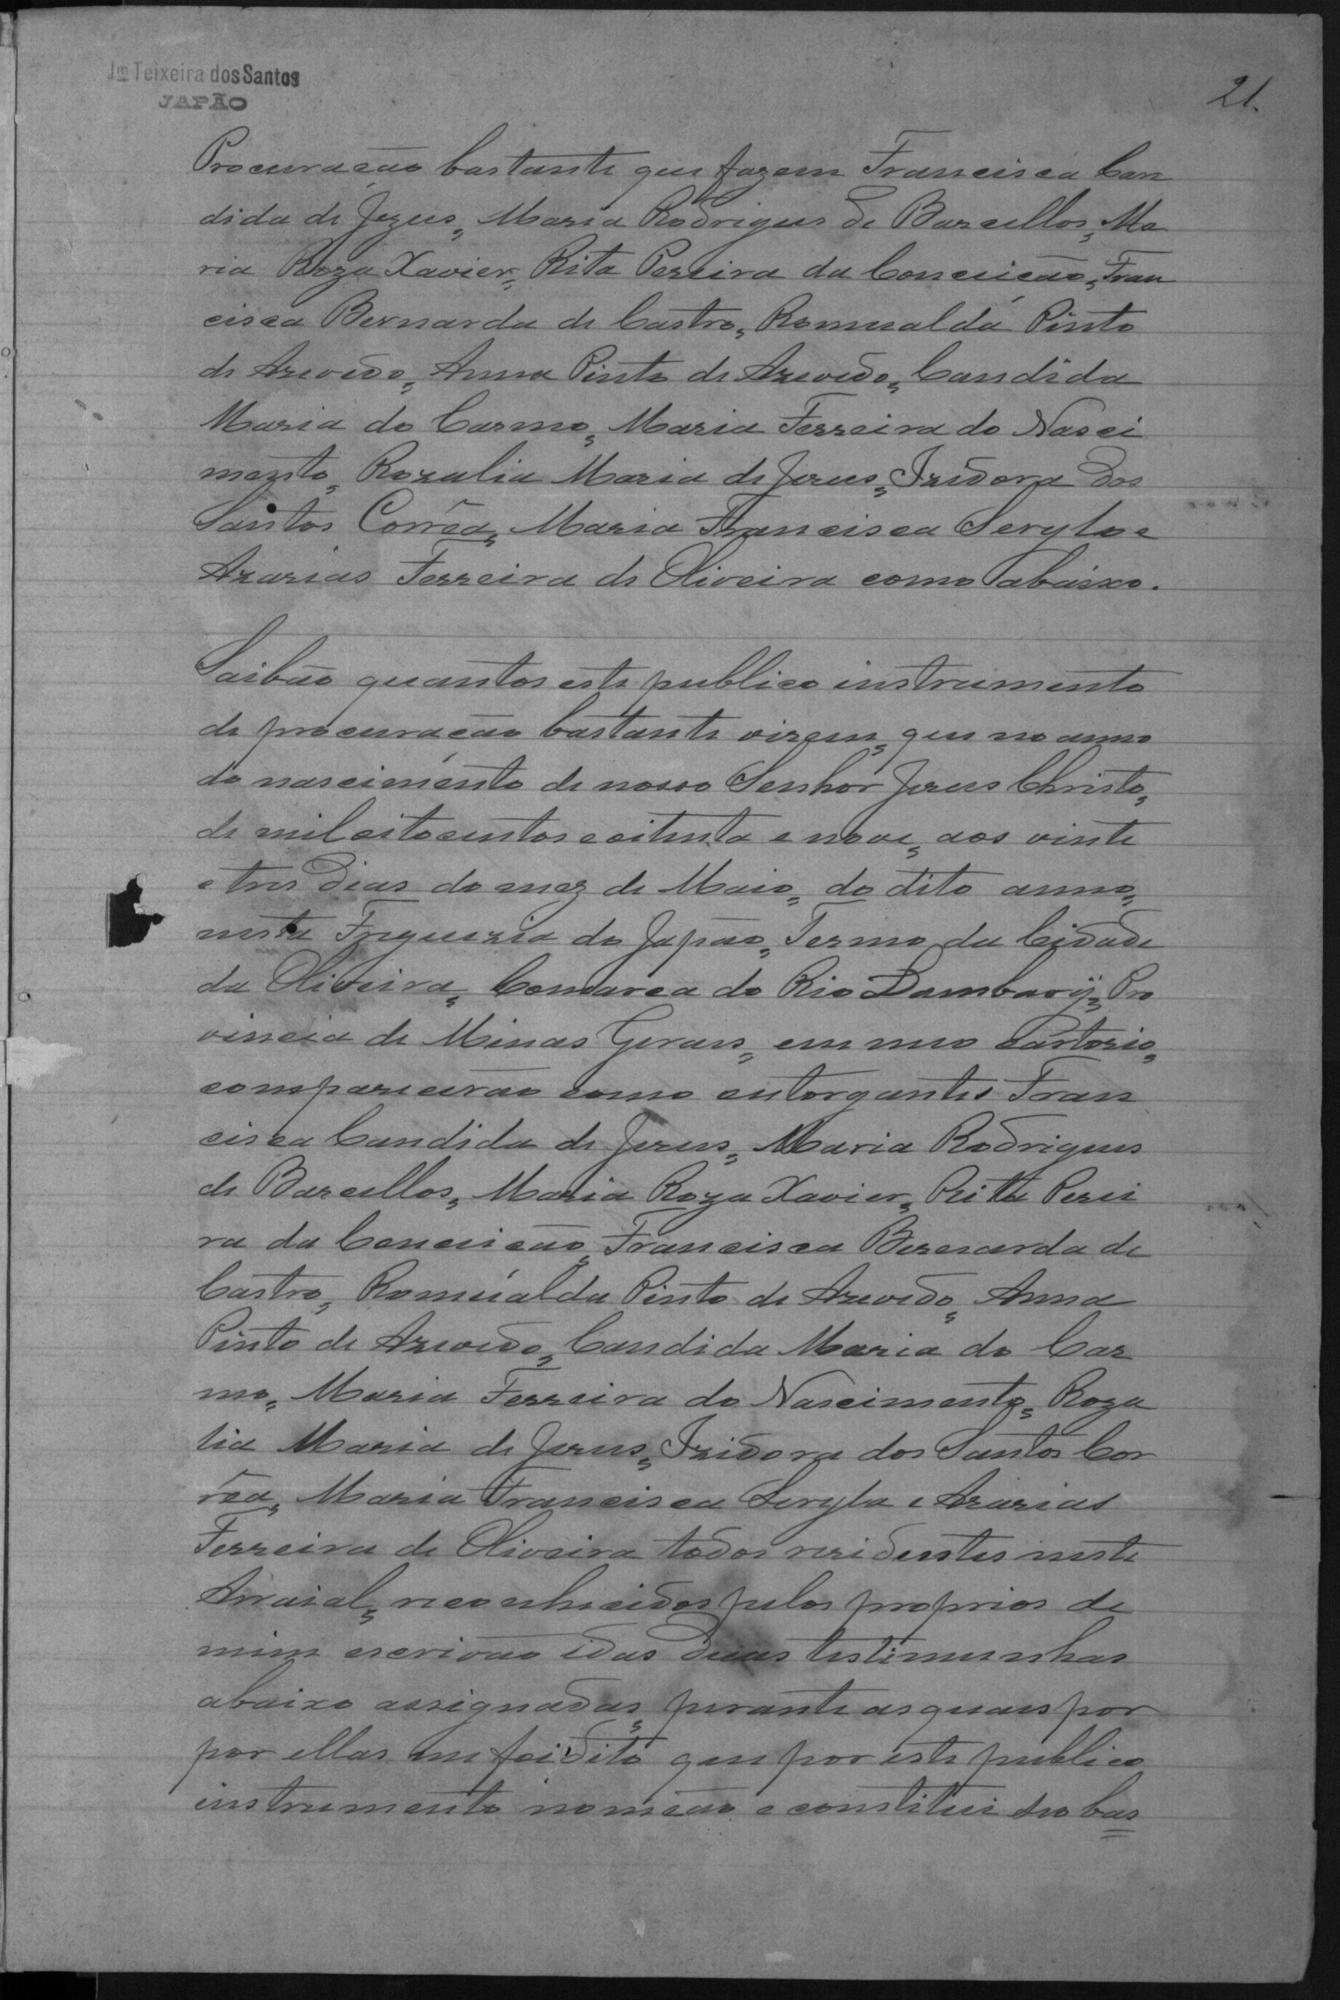 Jm Teixeira dos Santos
JAPÃO
21.
Procuração bastante que fazem Francisca Can
dida de Jezus, Maria Rodrigues de Barcellos, Ma
ria Roza Xavier, Rita Pereira da Conceição, Fran
cisca Bernarda de Castro, Romualda Pinto
de Azevedo, Anna Pinto de Azevedo, Candida
Maria do Carmo, Maria Ferreira do Nasci
mento, Rozalia Maria de Jezus, Izidora dos
Santos Corrêa, Maria Francisca e
Azarias Ferreira de Oliveira como abaixo.
Saibão quantos este publico instrumento
de procuração bastante virem, que no anno
do nascimento de nosso Senhor Jezus Christo,
de mil oitocentos e oitenta e nove, aos vinte
e tres dias do mez de Maio, do dito anno,
nesta Freguezia do Japão, Termo da Cidade
da Oliveira, Comarca do Rio Lambary, Pro
vincia de Minas Geraes, em meo cartorio,
comparecerão como outorgantes Fran
cisca Candida de Jezus, Maria Rodrigues
de Barcellos, Maria Roza Xavier, Rita Perei
ra da Conceição, Francisca Bernarda de
Castro, Romualda Pinto de Azevedo, Anna
Pinto de Azevedo, Candida Maria do Car
mo, Maria Ferreira do Nascimento, Roza
lia Maria de Jezus, Izidora dos Santos Cor
rêa, Maria Francisca e Azarias
Ferreira de Oliveira todos rezidentes neste
Arraial, reconhecidos pelos proprios de
mim escrivão e das duas testimunhas
abaixo assignadas, perante as quaes por
por ellas me foi dito que por este publico
instrumento nomeão e constitui seo bas